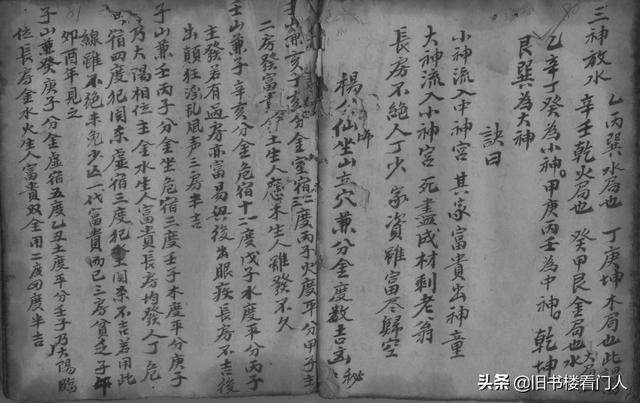 三神放水 乙丙巽水局也 丁庚坤木局也此楊
辛壬乾火局也 癸甲艮金局也水
乙辛丁癸為小神。甲庚丙壬為中神。乾坤
艮巽為大神
訣曰
小神流入中神宮 其家富貴出神童
大神流入小神宮 死盡成材剩老翁
長房不絕人丁少 家資雖富尽歸空
楊公仙师坐山立穴兼分金度数吉凶秘
壬山兼亥 丁亥分金室宿二度丙子火度平分甲子主
二房發富貴 土生人應未生人雖發不久
壬山兼子 辛亥分金危宿十二度戊子水度平分丙子
主發若有過房亦富易興後出眼疾長房不吉後
出顛狂淫乱風声三房半吉
子山兼壬丙子分金坐危宿二度壬子木度平分庚子
乃太陽相位主金水生人富貴長房均發人丁危
宿四度犯関杀虚宿三度犯関杀不吉若用此
線雖不絕未免少亡一代富貴而已三房貧乏子午
卯酉年見之
子山兼癸庚子分金虚宿五度乙丑土度平分壬子乃太陽臨
位長房金水火生人富貴双全用二度四度半吉
头条 @旧书楼看门人